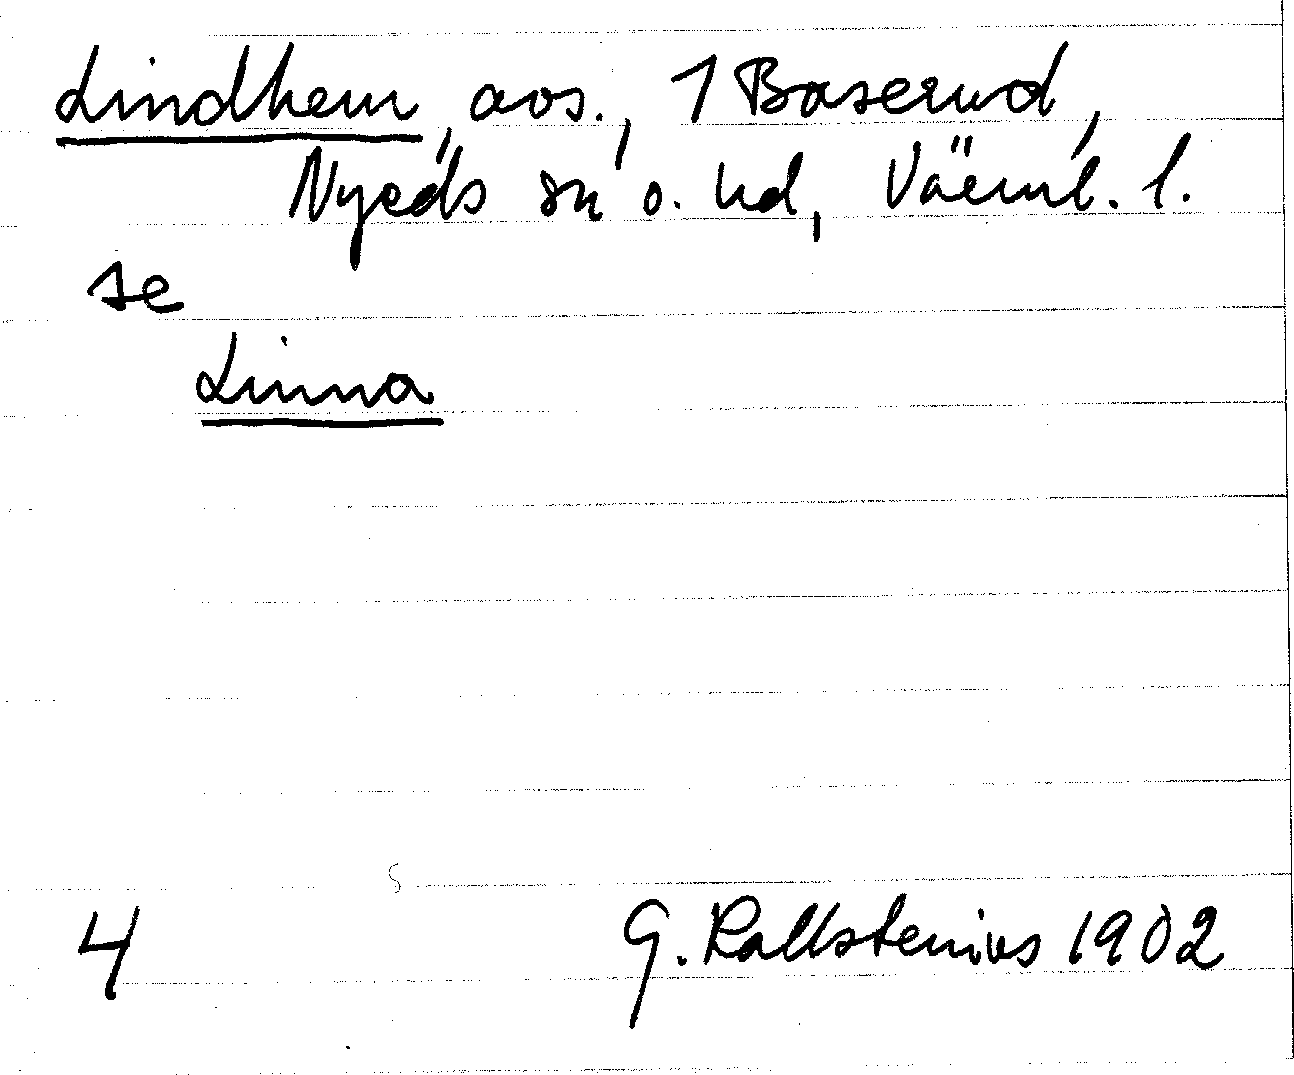 Lindhem, avs., 1 Baserud,
Nyeds sn o. hd, Värml. l.
se
Linna
4 G. Kallstenius 1902